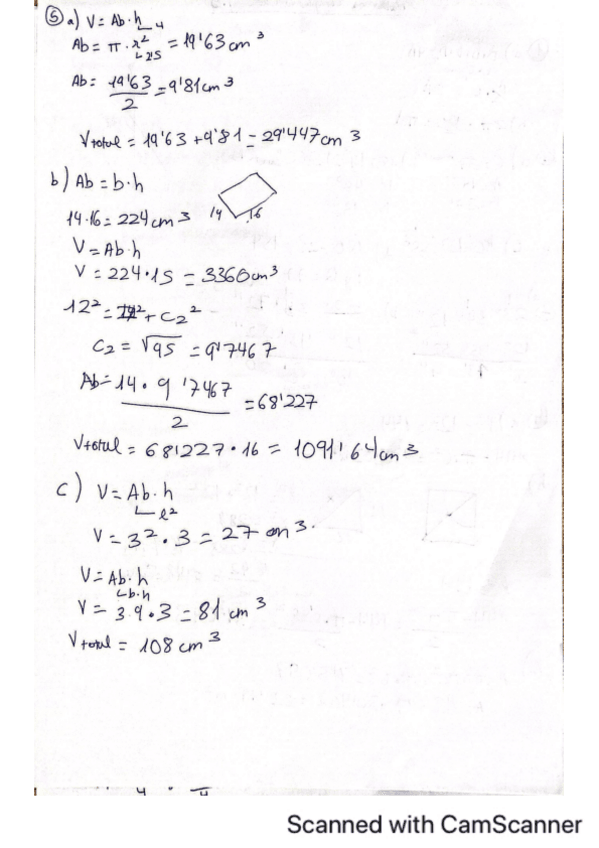 ⑤ a) V = Ab·h
4
Ab = π · r² = 19'63 cm³
2'5
Ab = 19'63/2 = 9'81 cm³
Vtotal = 19'63 + 9'81 = 29'447 cm³
b) Ab = b·h
14·16 = 224 cm³ 14 16
V = Ab·h
V = 224·15 = 3360 cm³
12² = + C₂²
C₂ = √95 = 9'7467
Ab = 14·9'7467/2 = 68'227
Vtotal = 68'227·16 = 1091'64 cm³
c) V = Ab·h
l²
V = 3²·3 = 27 cm³.
V = Ab·h
b·h
V = 3·9·3 = 81 cm³
Vtotal = 108 cm³
Scanned with CamScanner